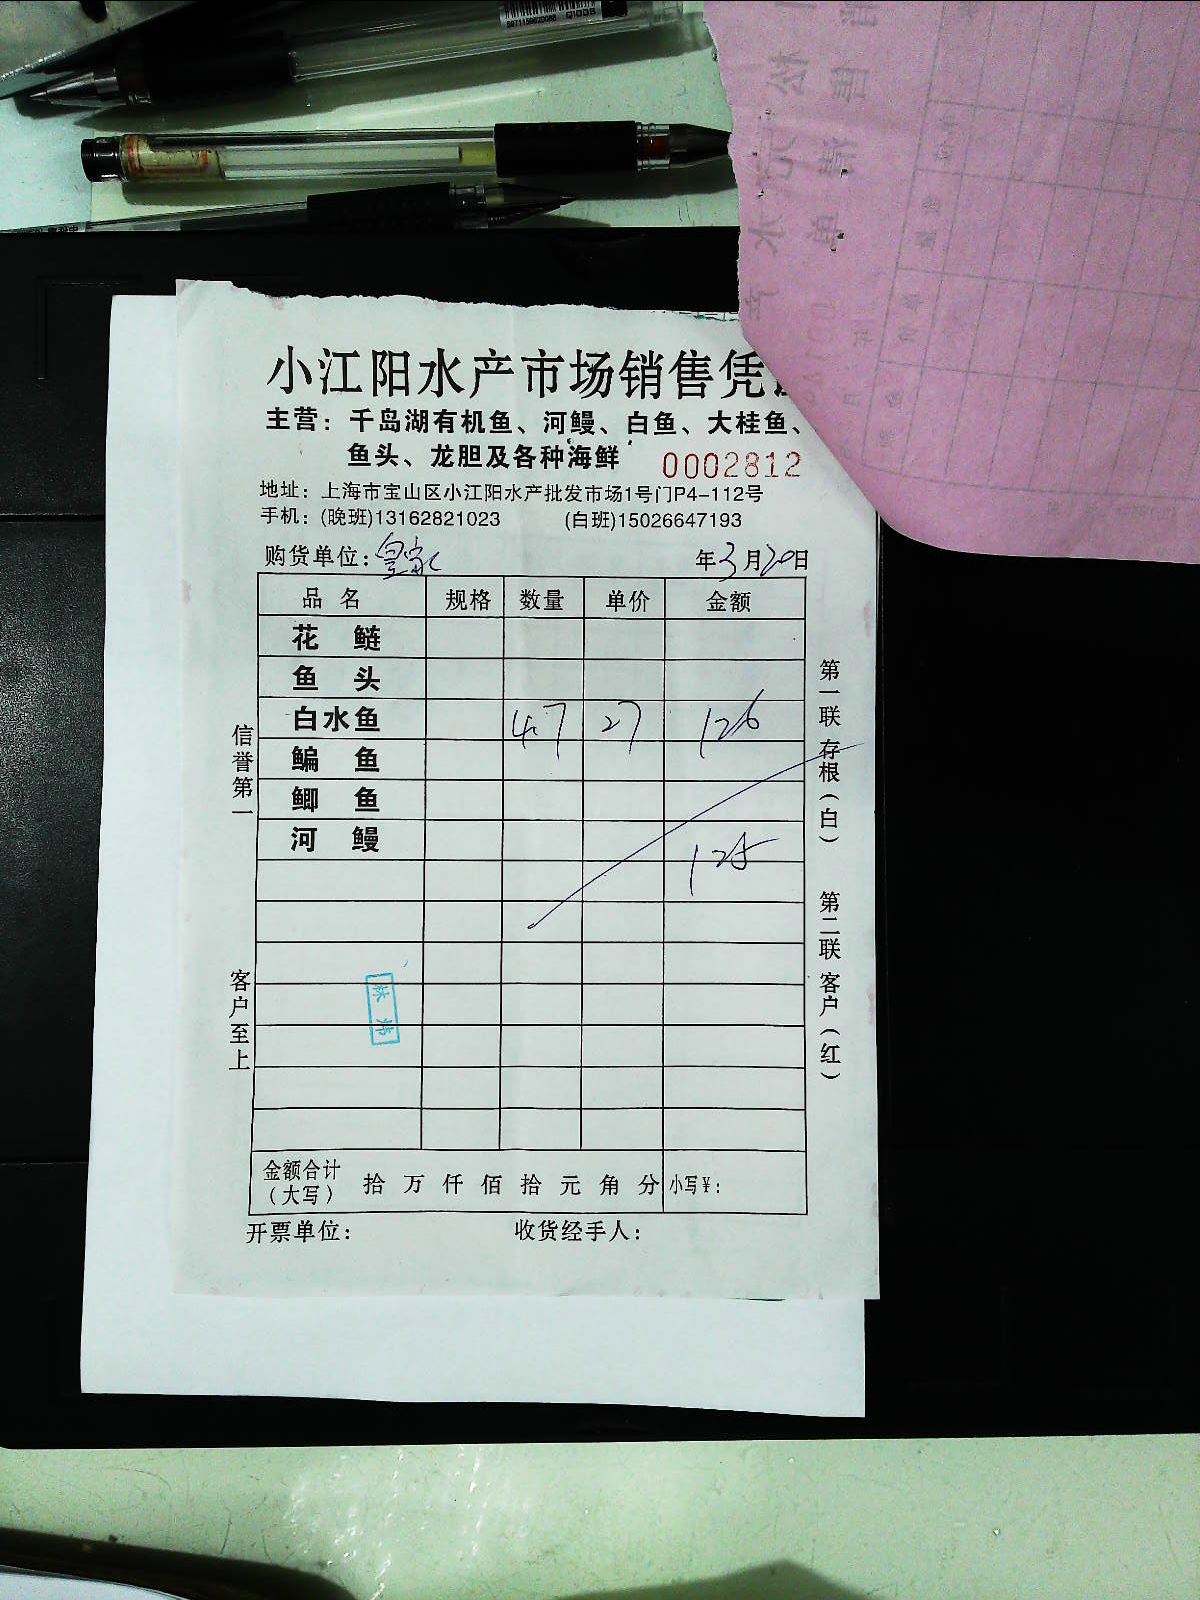 6971156620088 Q1008
小江阳水产市场销售凭
主营：千岛湖有机鱼、河鳗、白鱼、大桂鱼、
鱼头、龙胆及各种海鲜 0002812
地址：上海市宝山区小江阳水产批发市场1号门P4-112号
手机：(晚班)13162821023 (白班)15026647193
购货单位：皇家 年3月20日
品名 规格 数量 单价 金额
花鲢
鱼头
白水鱼 4.7 27 126
鳊鱼
鲫鱼
河鳗
125
金额合计（大写） 拾 万 仟 佰 拾 元 角 分 小写¥：
开票单位： 收货经手人：
信誉第一
客户至上
第一联 存根（白）
第二联 客户（红）